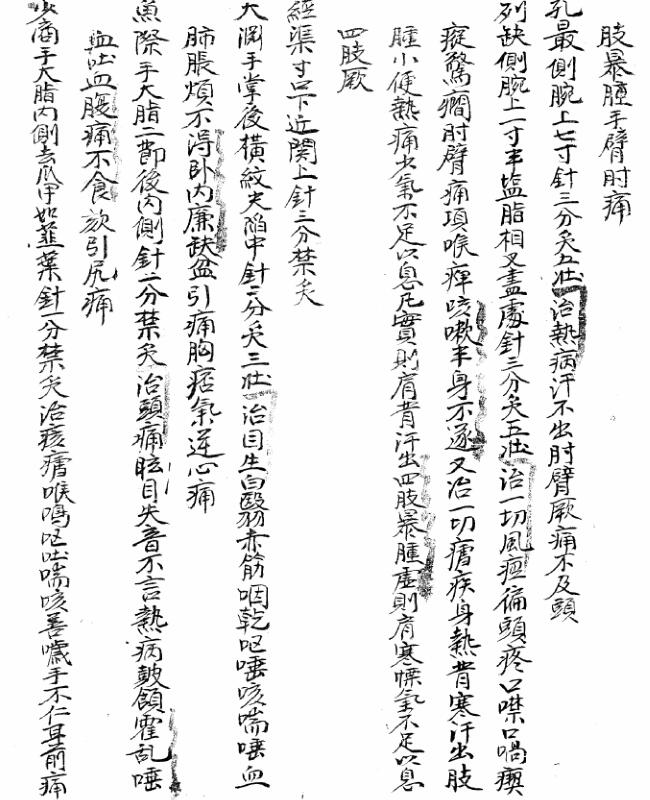 肢暴腫手臂肘痛
孔最側腕上七寸針三分灸五壯治熱病汗不出肘臂厥痛不及頭
列缺側腕上一寸半塩脂相叉盡處針三分灸五壯治一切風瘂偏頭疼口噤口喎瘈
瘲驚癎肘臂痛項喉痺咳嗽半身不遂又治一切瘧疾身熱背寒汗出肢
腫小便熱痛少氣不足以息凡實則肩背汗出四肢暴腫虛則肩寒慄氣不足以息
四肢厥
經渠寸口下近関上針三分禁灸
大淵手掌後横紋夫陷中針二分灸三壯治目生白翳赤筋咽乾呕唾咳喘唾血
肺脹煩不得卧內廉缺盆引痛胸痞氣逆心痛
魚際手大脂二節後內側針一分禁灸治頭痛眩目失音不言熱病皷頷霍乱唾
血吐血腹痛不食欬引尻痛
少商手大脂內側去爪甲如韮葉針一分禁灸治痎瘧喉嗚呕吐喘咳善噦手不仁耳前痛